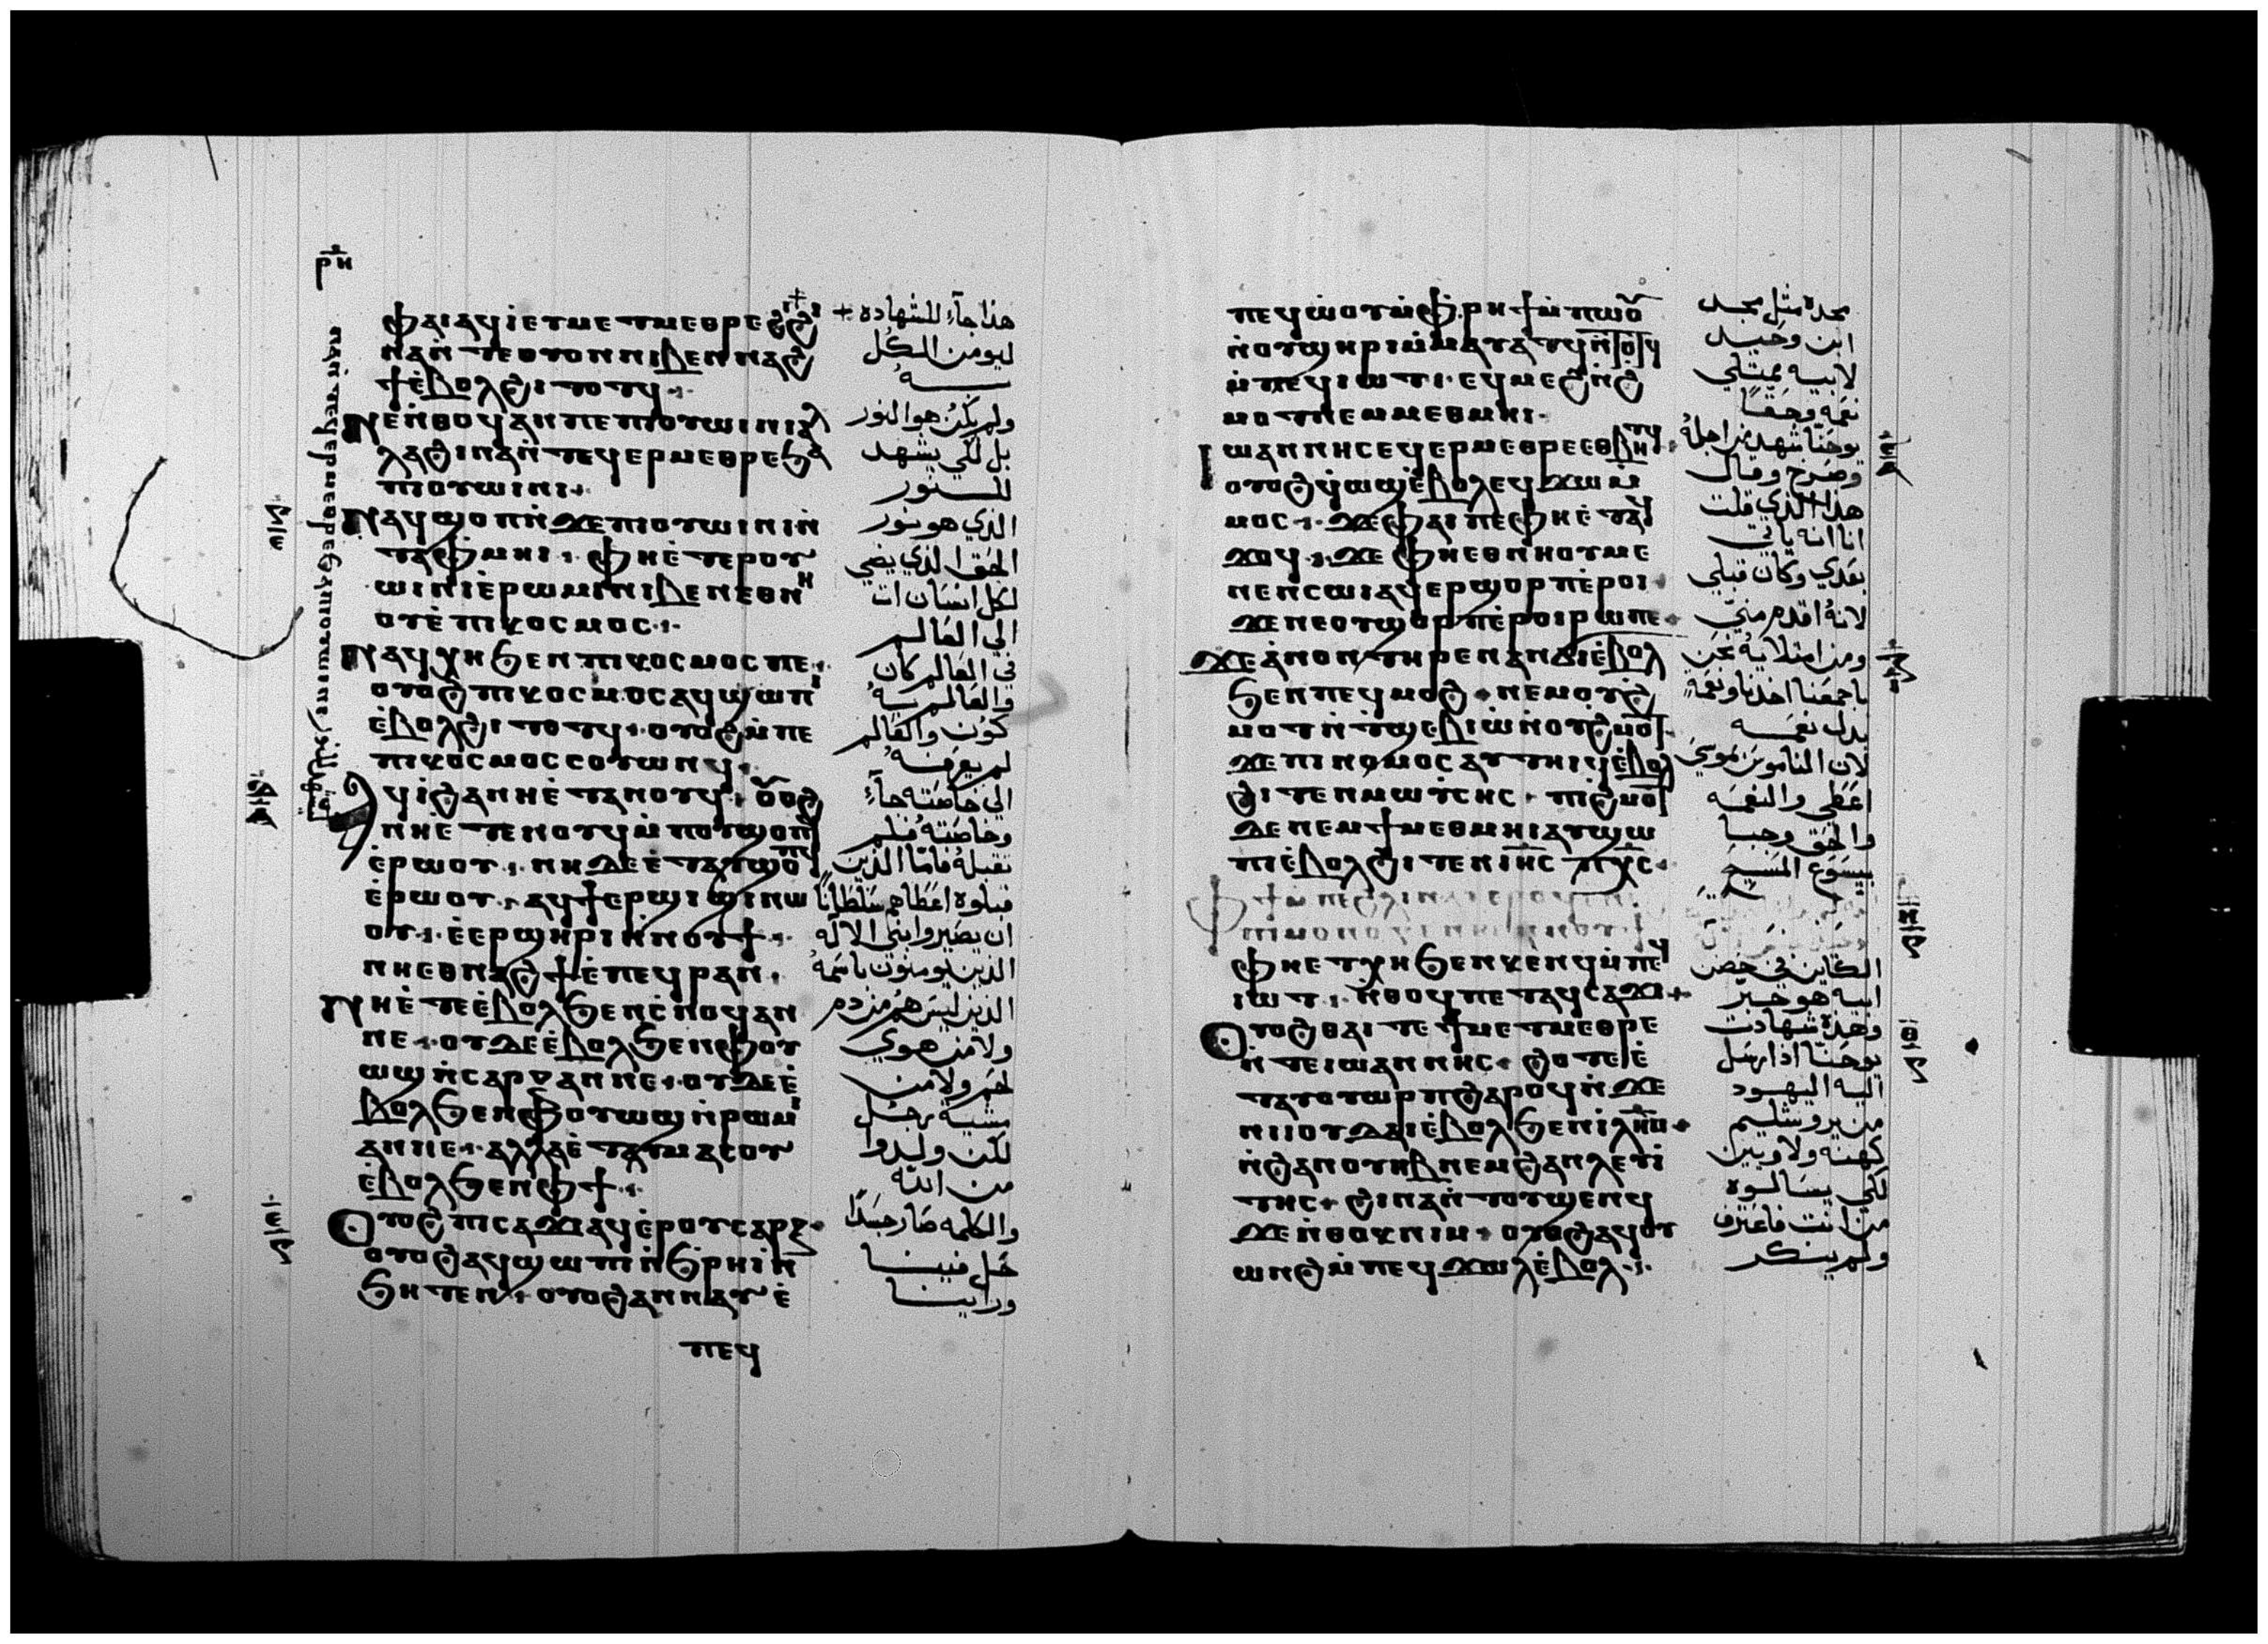 ⲣⲏ
ⲫⲁⲓ ⲁϥⲓ ⲉⲩⲙⲉⲧⲙⲉⲑⲣⲉ ϩⲓ
ⲛⲁ ⲛⲧⲉ ⲟⲩⲟⲛ ⲛⲓⲃⲉⲛ ⲛⲁϩ
ϯ ⲉⲃⲟⲗ ϩⲓⲧⲟⲧϥ
ⲛⲉ ⲛⲑⲟϥ ⲁⲛ ⲡⲉ ⲡⲓⲟⲩⲱⲓⲛⲓ ⲁⲗ
ⲗⲁ ϩⲓⲛⲁ ⲛⲧⲉϥⲉⲣⲙⲉⲑⲣⲉ ϧⲁ
ⲡⲓⲟⲩⲱⲓⲛⲓ
ⲛⲁϥϣⲟⲡ ⲛϫⲉ ⲡⲓⲟⲩⲱⲓⲛⲓ ⲛ
ⲧⲁⲫⲙⲏⲓ ⲫⲏ ⲉⲧⲉⲣⲟⲩ
ⲱⲓⲛⲓ ⲉⲣⲱⲙⲓ ⲛⲓⲃⲉⲛ ⲉⲑⲛⲏ
ⲟⲩ ⲉⲡⲓⲕⲟⲥⲙⲟⲥ
ⲛⲁϥⲭⲏ ϧⲉⲛ ⲡⲓⲕⲟⲥⲙⲟⲥ ⲡⲉ
ⲟⲩⲟϩ ⲡⲓⲕⲟⲥⲙⲟⲥ ⲁϥϣⲱⲡⲓ
ⲉⲃⲟⲗ ϩⲓⲧⲟⲧϥ ⲟⲩⲟϩ ⲙⲡⲉ
ⲡⲓⲕⲟⲥⲙⲟⲥ ⲥⲟⲩⲱⲛϥ
ⲁϥⲓ ϩⲁ ⲛⲏ ⲉⲧⲉⲛⲟⲩϥ ⲟⲩⲟϩ
ⲛⲏ ⲉⲧⲉⲛⲟⲩϥ ⲙⲡⲟⲩϣⲟⲡϥ
ⲉⲣⲱⲟⲩ ⲛⲏ ⲇⲉ ⲉⲧⲁⲩϣⲟⲡϥ
ⲉⲣⲱⲟⲩ ⲁϥϯⲉⲣϣⲓϣⲓ ⲛⲱ
ⲟⲩ ⲉⲉⲣϣⲏⲣⲓ ⲛⲛⲟⲩϯ
ⲛⲏ ⲉⲑⲛⲁϩϯ ⲉⲡⲉϥⲣⲁⲛ
ⲛⲏ ⲉⲧⲉ ⲉⲃⲟⲗ ϧⲉⲛ ⲥⲛⲟϥ ⲁⲛ
ⲛⲉ ⲟⲩⲇⲉ ⲉⲃⲟⲗ ϧⲉⲛ ⲫⲟⲩ
ⲱϣ ⲛⲥⲁⲣⲝ ⲁⲛ ⲛⲉ ⲟⲩⲇⲉ ⲉ
ⲃⲟⲗ ϧⲉⲛ ⲫⲟⲩⲱϣ ⲛⲣⲱⲙⲓ
ⲁⲛ ⲛⲉ ⲁⲗⲗⲁ ⲉⲧⲁⲩⲙⲁⲥⲟⲩ
ⲉⲃⲟⲗ ϧⲉⲛ ⲫϯ
ⲟⲩⲟϩ ⲡⲓⲥⲁϫⲓ ⲁϥⲉⲣ ⲟⲩⲥⲁⲣⲝ
ⲟⲩⲟϩ ⲁϥϣⲱⲡⲓ ⲛϧⲣⲏⲓ ⲛ
ϧⲏⲧⲉⲛ ⲟⲩⲟϩ ⲁⲛⲛⲁⲩ ⲉ
ⲡⲉϥ
هذا جآء للشهاده
ليومن الكل
به
ولم يكن هو النور
بل لكي يشهد
للنور
الذي هو نور
الحق الذي يضي
لكل انسان ات
الي العالم
في العالم كان
والعالم به
كون والعالم
لم يعرفه
الي خاصته جآء
وخاصته فلم
تقبله فاما الذين
قبلوه اعطاهم سلطانا
ان يصيروا بني الاله
الذين يومنون باسمه
الذين ليس هم من دم
ولا من هوي
لحم ولا من
مشية رجل
لكن ولدوا
من الله
والكلمه صار جسدا
حل فينا
وراينا
ⲡⲉϥⲱⲟⲩ ⲙⲫⲣⲏϯ ⲙⲡⲱⲟⲩ
ⲛⲟⲩϣⲏⲣⲓ ⲙⲙⲁⲩⲁⲧϥ ⲛⲧⲟⲧϥ
ⲙⲡⲉϥⲓⲱⲧ ⲉϥⲙⲉϩ ⲛϩ
ⲙⲟⲧ ⲛⲉⲙ ⲙⲉⲑⲙⲏⲓ
ⲓⲱⲁⲛⲛⲏⲥ ⲉϥⲉⲣⲙⲉⲑⲣⲉ ⲉⲑⲃⲏⲧϥ
ⲟⲩⲟϩ ϥⲱϣ ⲉⲃⲟⲗ ⲉϥϫⲱ ⲙ
ⲙⲟⲥ ϫⲉ ⲫⲁⲓ ⲡⲉ ⲫⲏ ⲉⲧⲁⲓ
ϫⲟϥ ϫⲉ ⲫⲏ ⲉⲑⲛⲏⲟⲩ ⲙⲉ
ⲛⲉⲛⲥⲱⲓ ⲁϥⲉⲣϣⲟⲣⲡ ⲉⲣⲟⲓ
ϫⲉ ⲛⲉ ⲟⲩϣⲟⲣⲡ ⲉⲣⲟⲓ ⲣⲱ ⲡⲉ
ϫⲉ ⲁⲛⲟⲛ ⲧⲏⲣⲉⲛ ⲁⲛϭⲓ ⲉⲃⲟⲗ
ϧⲉⲛ ⲡⲉϥⲙⲟϩ ⲛⲉⲙ ⲟⲩϩ
ⲙⲟⲧ ⲛⲧϣⲉⲃⲓⲱ ⲛⲟⲩϩⲙⲟⲧ
ϫⲉ ⲡⲓⲛⲟⲙⲟⲥ ⲁⲩⲧⲏⲓϥ ⲉⲃⲟⲗ
ϩⲓⲧⲉⲛ ⲙⲱⲩⲥⲏⲥ ⲡⲓϩⲙⲟⲧ
ⲇⲉ ⲛⲉⲙ ϯⲙⲉⲑⲙⲏⲓ ⲁⲩϣⲱ
ⲡⲓ ⲉⲃⲟⲗ ϩⲓⲧⲉⲛ ⲓⲏⲥ ⲡⲭⲥ
ⲫϯ ⲙⲡⲉ ϩⲗⲓ ⲛⲁⲩ ⲉⲣⲟϥ
ⲡⲓⲙⲟⲛⲟⲅⲉⲛⲏⲥ ⲛⲛⲟⲩϯ
ⲫⲏ ⲉⲧⲭⲏ ϧⲉⲛ ⲕⲉⲛϥ ⲙⲡⲉϥ
ⲓⲱⲧ ⲛⲑⲟϥ ⲡⲉⲧⲁϥⲥⲁϫⲓ
ⲟⲩⲟϩ ⲑⲁⲓ ⲧⲉ ϯⲙⲉⲧⲙⲉⲑⲣⲉ
ⲛⲧⲉ ⲓⲱⲁⲛⲛⲏⲥ ϩⲟⲧⲉ ⲉ
ⲧⲁⲩⲟⲩⲱⲣⲡ ϩⲁⲣⲟϥ ⲛϫⲉ
ⲛⲓⲓⲟⲩⲇⲁⲓ ⲉⲃⲟⲗ ϧⲉⲛ ⲓⲗⲏⲙ
ⲛϩⲁⲛⲟⲩⲏⲃ ⲛⲉⲙ ϩⲁⲛⲗⲉⲩⲓ
ⲧⲏⲥ ϩⲓⲛⲁ ⲛⲧⲟⲩϣⲉⲛϥ
ϫⲉ ⲛⲑⲟⲕ ⲛⲓⲙ ⲟⲩⲟϩ ⲁϥⲟⲩ
ⲱⲛϩ ⲙⲡⲉϥϫⲱⲗ ⲉⲃⲟⲗ
مجده مثل مجد
ابن وحيد
لابيه ممتلي
نعمه وحقا
يوحنا شهد من اجله
وصرخ وقال
هذا الذي قلت
انا انه ياتي
بعدي وكان قبلي
لانه اقدم مني
ومن امتلايه نحن
باجمعنا اخذنا ونعمه
بدل نعمه
لان الناموس لموسي
اعطي والنعمه
والحق وجبا
بيسوع المسيح
الكاين في حضن
ابيه هو خبر
وهذه شهادت
يوحنا اذ ارسل
اليه اليهود
من يروشليم
كهنه ولاويين
لكي يسالوه
من انت فاعترف
ولم ينكر